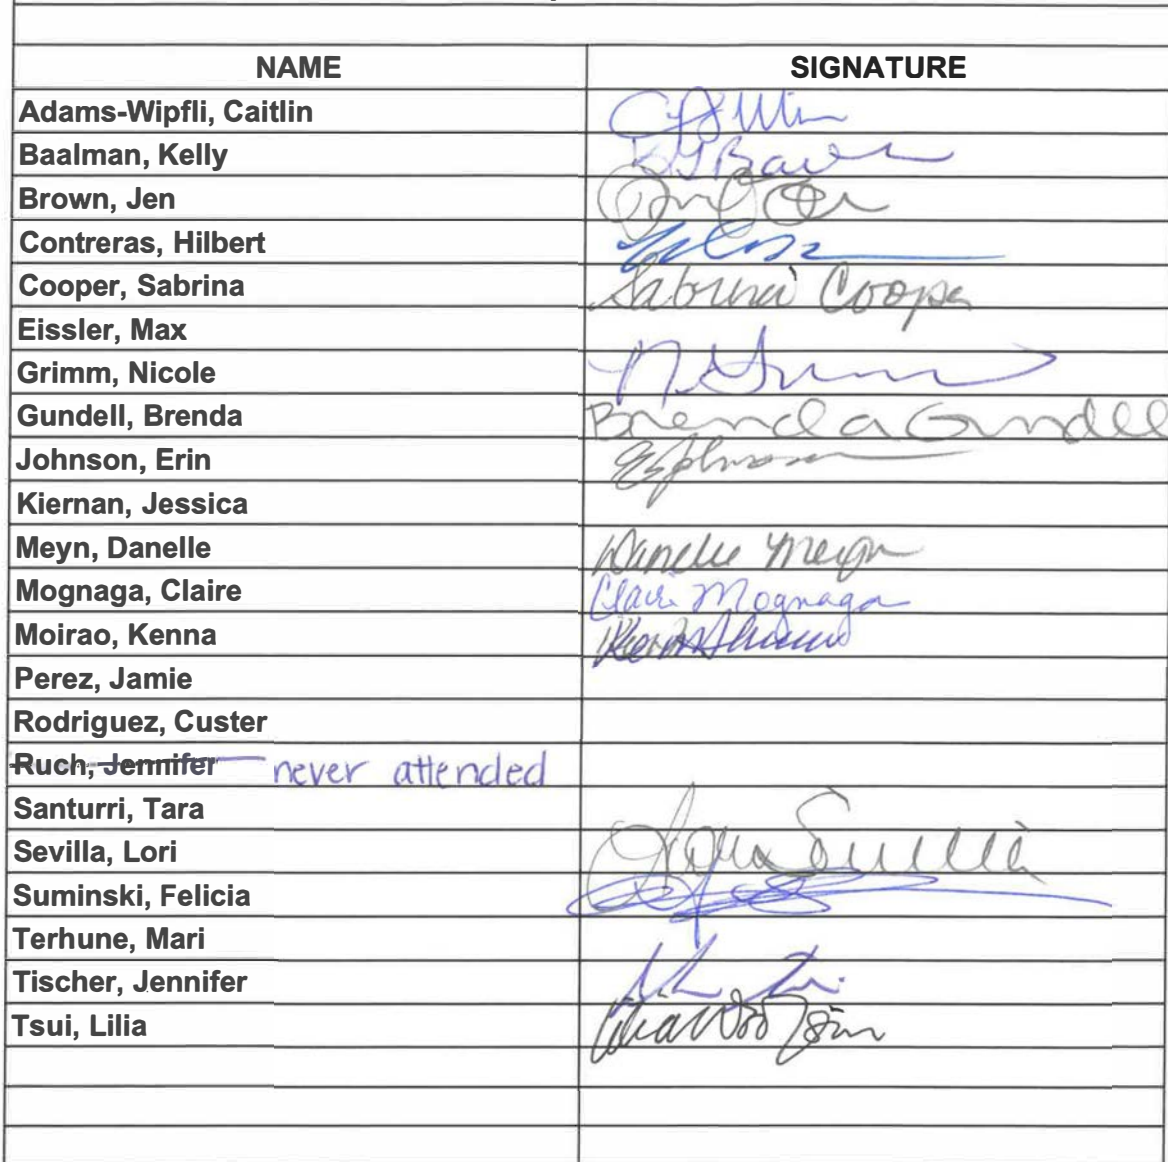 NAME SIGNATURE
Adams-Wipfli, Caitlin
Baalman, Kelly
Brown, Jen
Contreras, Hilbert
Cooper, Sabrina Sabrina Cooper
Eissler, Max
Grimm, Nicole
Gundell, Brenda Brenda Gundell
Johnson, Erin
Kiernan, Jessica
Meyn, Danelle Danelle Meyn
Mognaga, Claire Claire Mognaga
Moirao, Kenna
Perez, Jamie
Rodriguez, Custer
Ruch, Jennifer never attended
Santurri, Tara
Sevilla, Lori
Suminski, Felicia
Terhune, Mari
Tischer, Jennifer
Tsui, Lilia